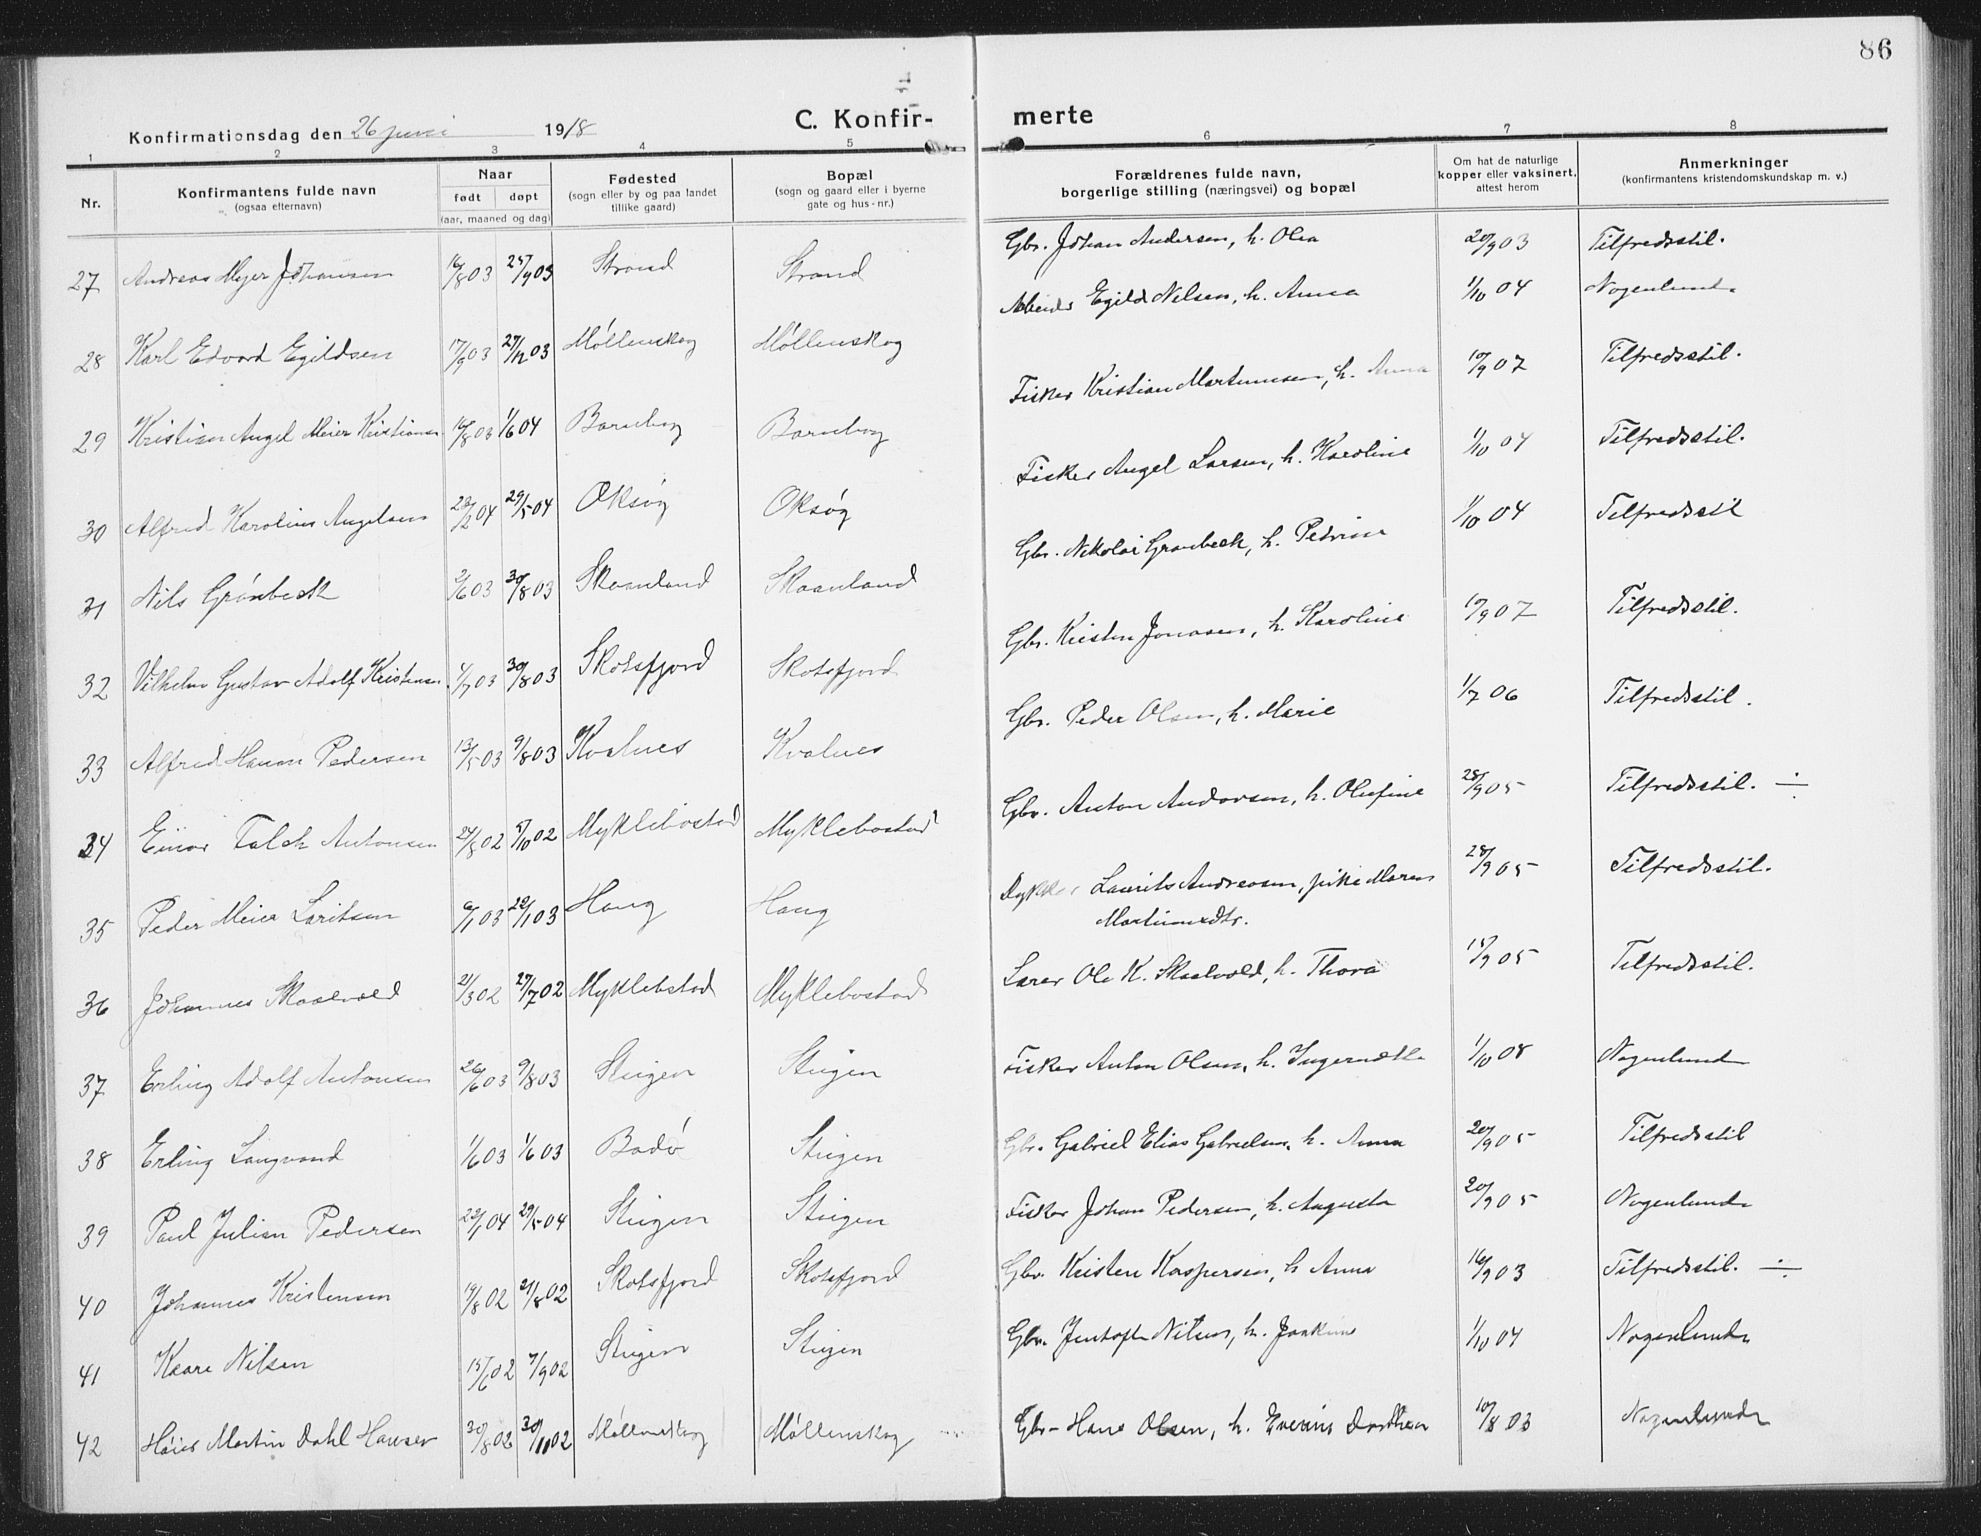 86
C. Konfir- merte
Konfirmationsdag den 26 juni 1918
1 2 3 4 5 6 7 8
Nr.
Konfirmantens fulde navn
(ogsaa efternavn)
Naar
født døpt
(aar, maaned og dag)
Fødested
(sogn eller by og paa landet
tillike gaard)
Bopæl
(sogn og gaard eller i byerne
gate og hus-nr.)
Forældrenes fulde navn,
borgerlige stilling (næringsvei) og bopæl
Om hat de naturlige
kopper eller vaksinert,
attest herom
Anmerkninger
(konfirmantens kristendomskundskap m. v.)
27 Andreas Meyer Johansen 16/8 03 25/9 03 Strand Strand Gbr. Johan Andersen, h. Olea 20/9 03 Tilfredsstil.
28 Karl Edvard Egildsen 17/9 03 27/12 03 Møllenskog Møllenskog Arbeider Egild Nilsen, h. Anna 1/10 04 Nogenlunde
29 Kristian Angel Meier Kristiansen 16/8 03 1/6 04 Barnbog Barnbog Fisker Kristian Martinussen, h. Anna 10/9 07 Tilfredsstil.
30 Alfred Karolius Angelsen 23/2 04 29/5 04 Oksøg Oksøg Fisker Angel Larsen, h. Karoline 1/10 04 Tilfredsstil.
31 Nils Grønbeck 2/6 03 30/8 03 Skaanland Skaanland Gbr. Nikolai Grønbeck, h. Petrine 1/10 04 Tilfredsstil
32 Vilhelm Gustav Adolf Kristensen 4/7 03 30/8 03 Skotsfjord Skotsfjord Gbr. Kristen Jonasen, h. Karoline 10/9 07 Tilfredsstil.
33 Alfred Hanan Pedersen 13/5 03 9/8 03 Kvalnes Kvalnes Gbr. Peder Olsen, h. Marie 1/7 06 Tilfredsstil.
34 Einar Falch Antonsen 24/8 02 5/10 02 Myklebostad Myklebostad Gbr. Anton Andorsen, h. Olufine 28/9 05 Tilfredsstil. ÷
35 Peder Meier Laritsen 6/1 03 22/1 03 Haug Haug Dykker Laurits Andreasen, pike Maren
Martinusdtr. 28/9 05 Tilfredsstil.
36 Johannes Skaalvold 21/3 02 27/7 02 Myklebstad Myklebostad Lærer Ole K. Skaalvold, h. Thora 15/9 05 Tilfredsstil.
37 Erling Adolf Antonsen 26/6 03 9/8 03 Steigen Steigen Fisker Anton Olsen, h. 1/10 08 Nogenlunde
38 Erling Langvand 1/6 03 1/6 03 Bodø Steigen Gbr. Gabriel Elias Gabrielsen, h. Anna 20/9 05 Tilfredsstil
39 Paul Julian Pedersen 22/1 04 29/5 04 Steigen Steigen Fisker Johan Pedersen, h. Augusta 20/9 05 Nogenlunde
40 Johannes Kristensen 19/8 02 21/8 02 Skotsfjord Skotsfjord Gbr. Kristen Kaspersen, h Anna 16/9 03 Tilfredsstil. ÷
41 Kaare Nilsen 15/6 02 7/9 02 Steigen Steigen Gbr. Jentoft Nilsen, h. Joakine 1/10 04 Nogenlunde
42 Martin Dahl Hansen 30/8 02 30/11 02 Møllenskog Møllenskog Gbr- Hans Olsen, h. Dorthea 10/8 03 Nogenlunde